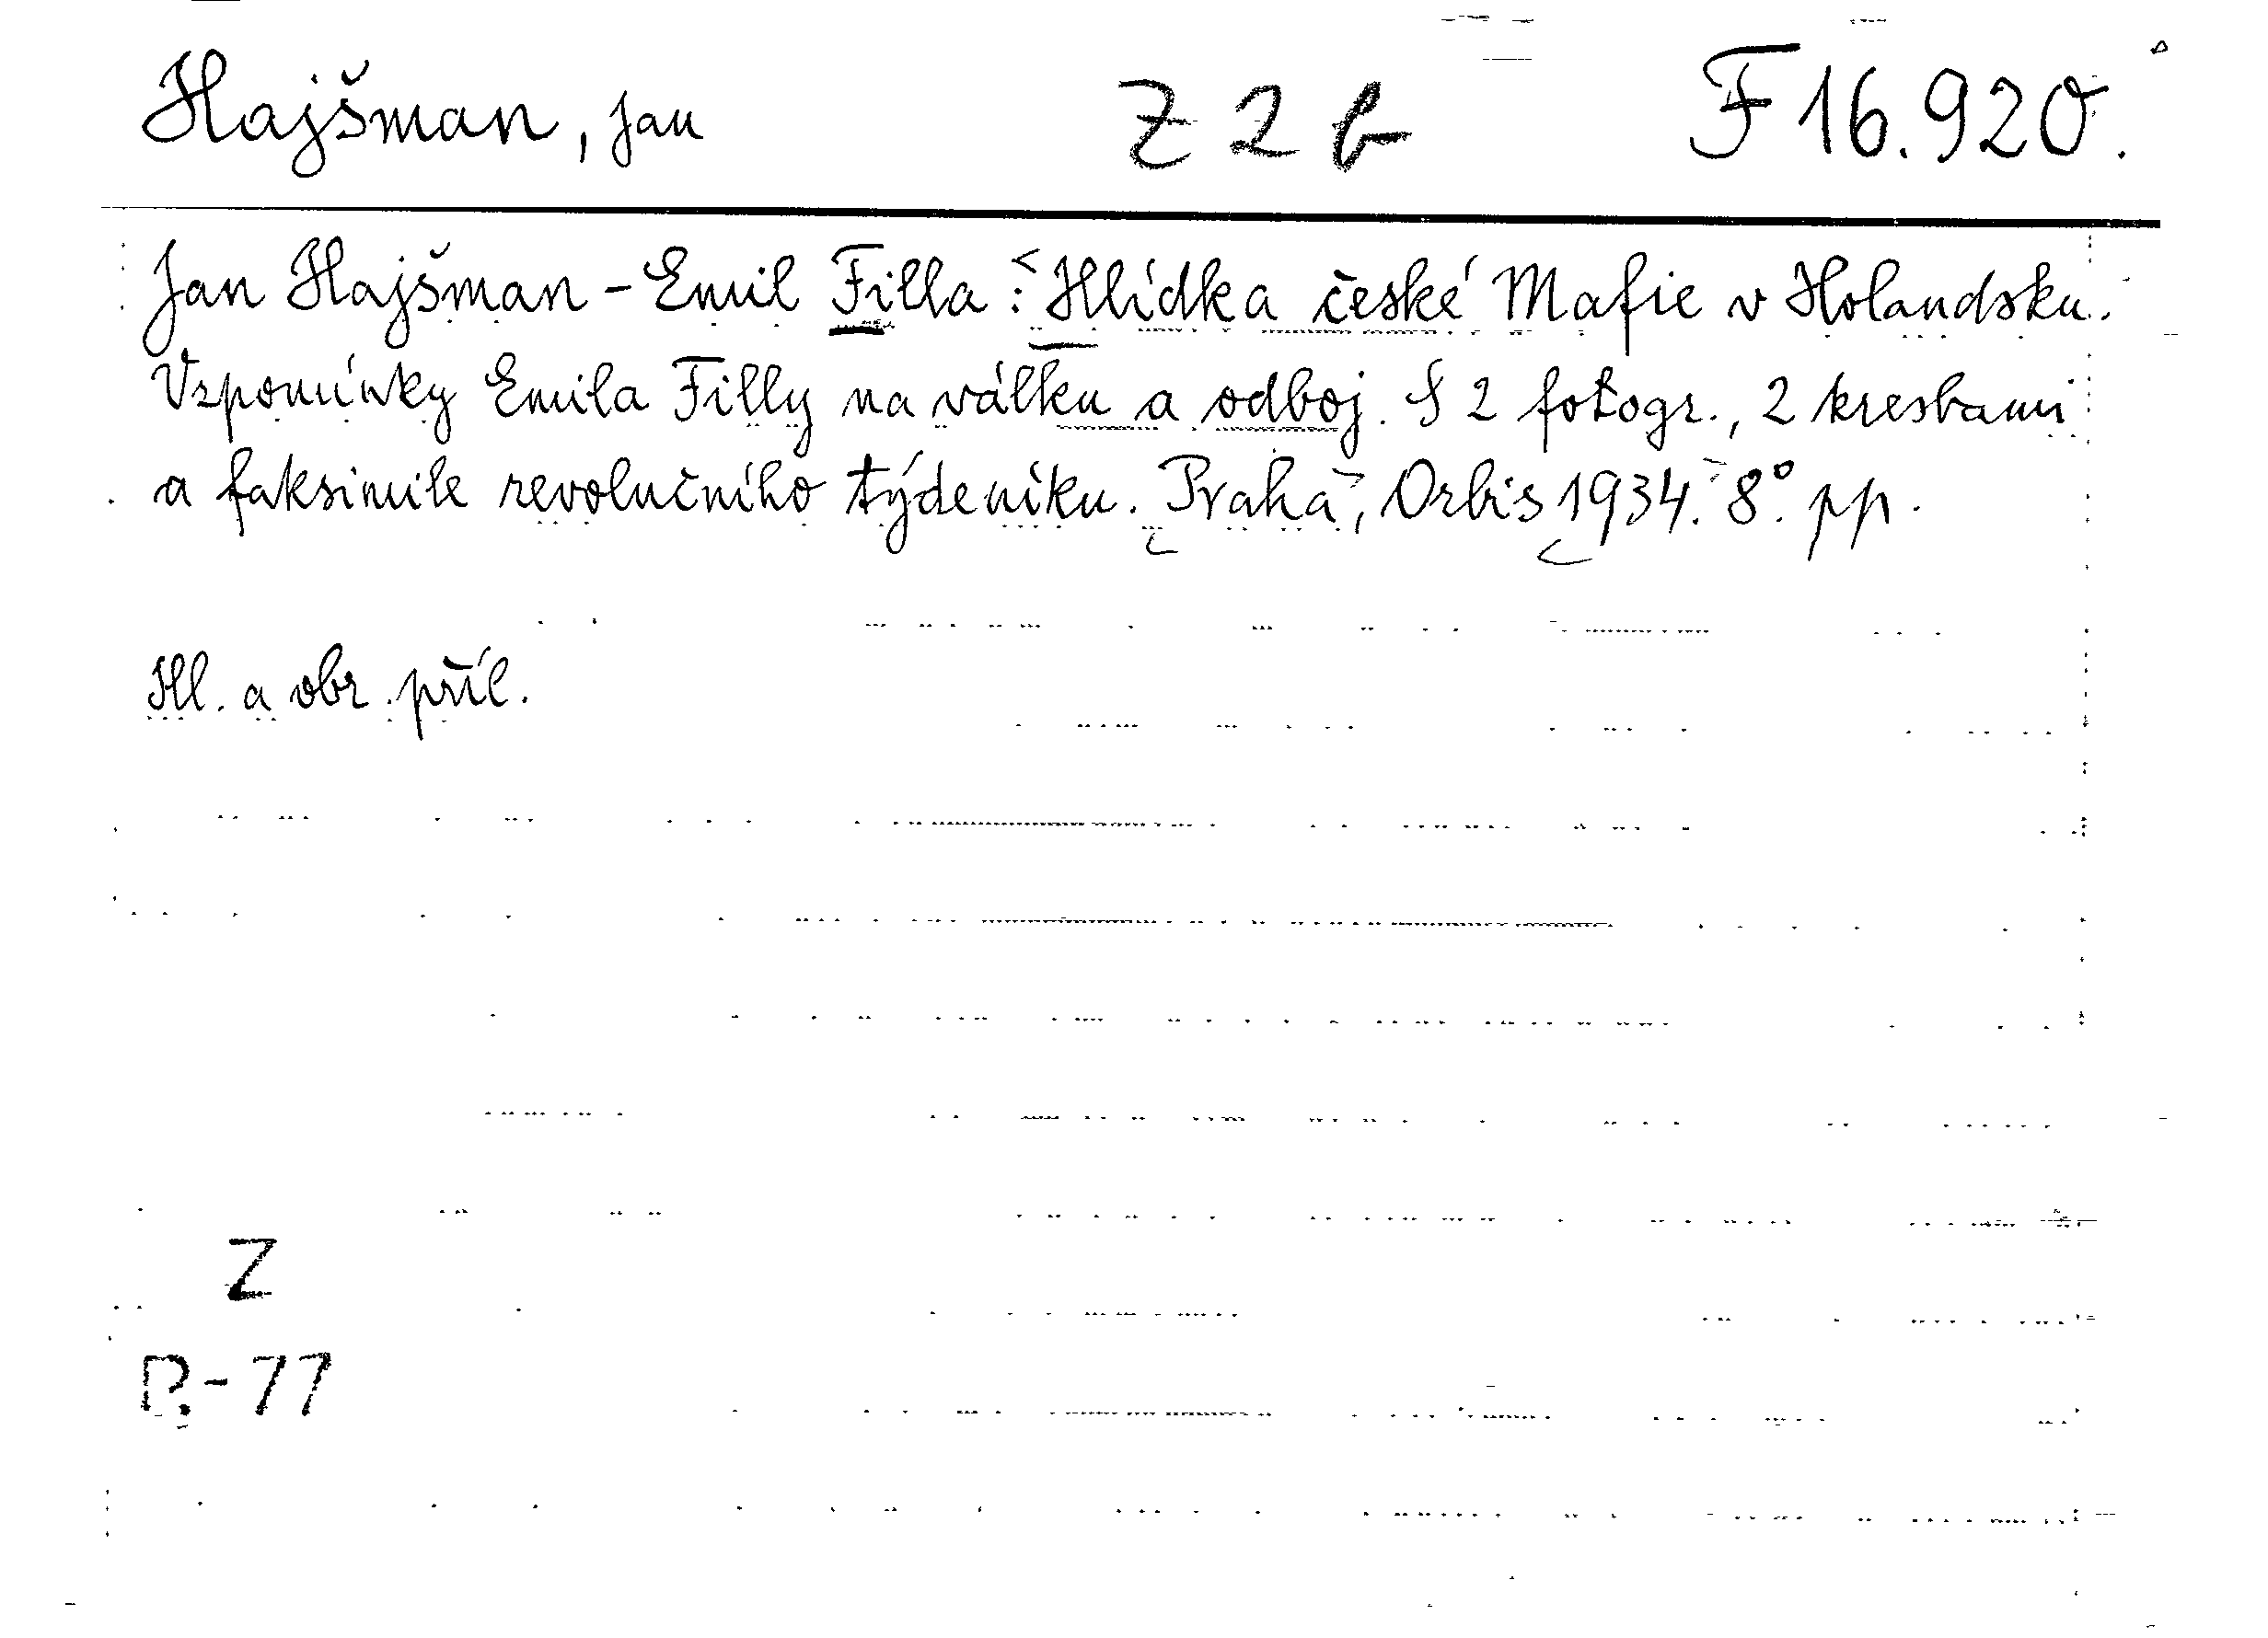 Hajšman, Jan Z 2 b F 16.920.
Jan Hajšman - Emil Filla : Hlídka české Mafie v Holandsku.
Vzpomínky Emila Filly na válku a odboj. S 2 fotogr., 2 kresbami
a faksimile revolučního týdeníku. Praha, Orbis 1934. 8°. pp.
Ill. a obr. příl.
Z
P.-77